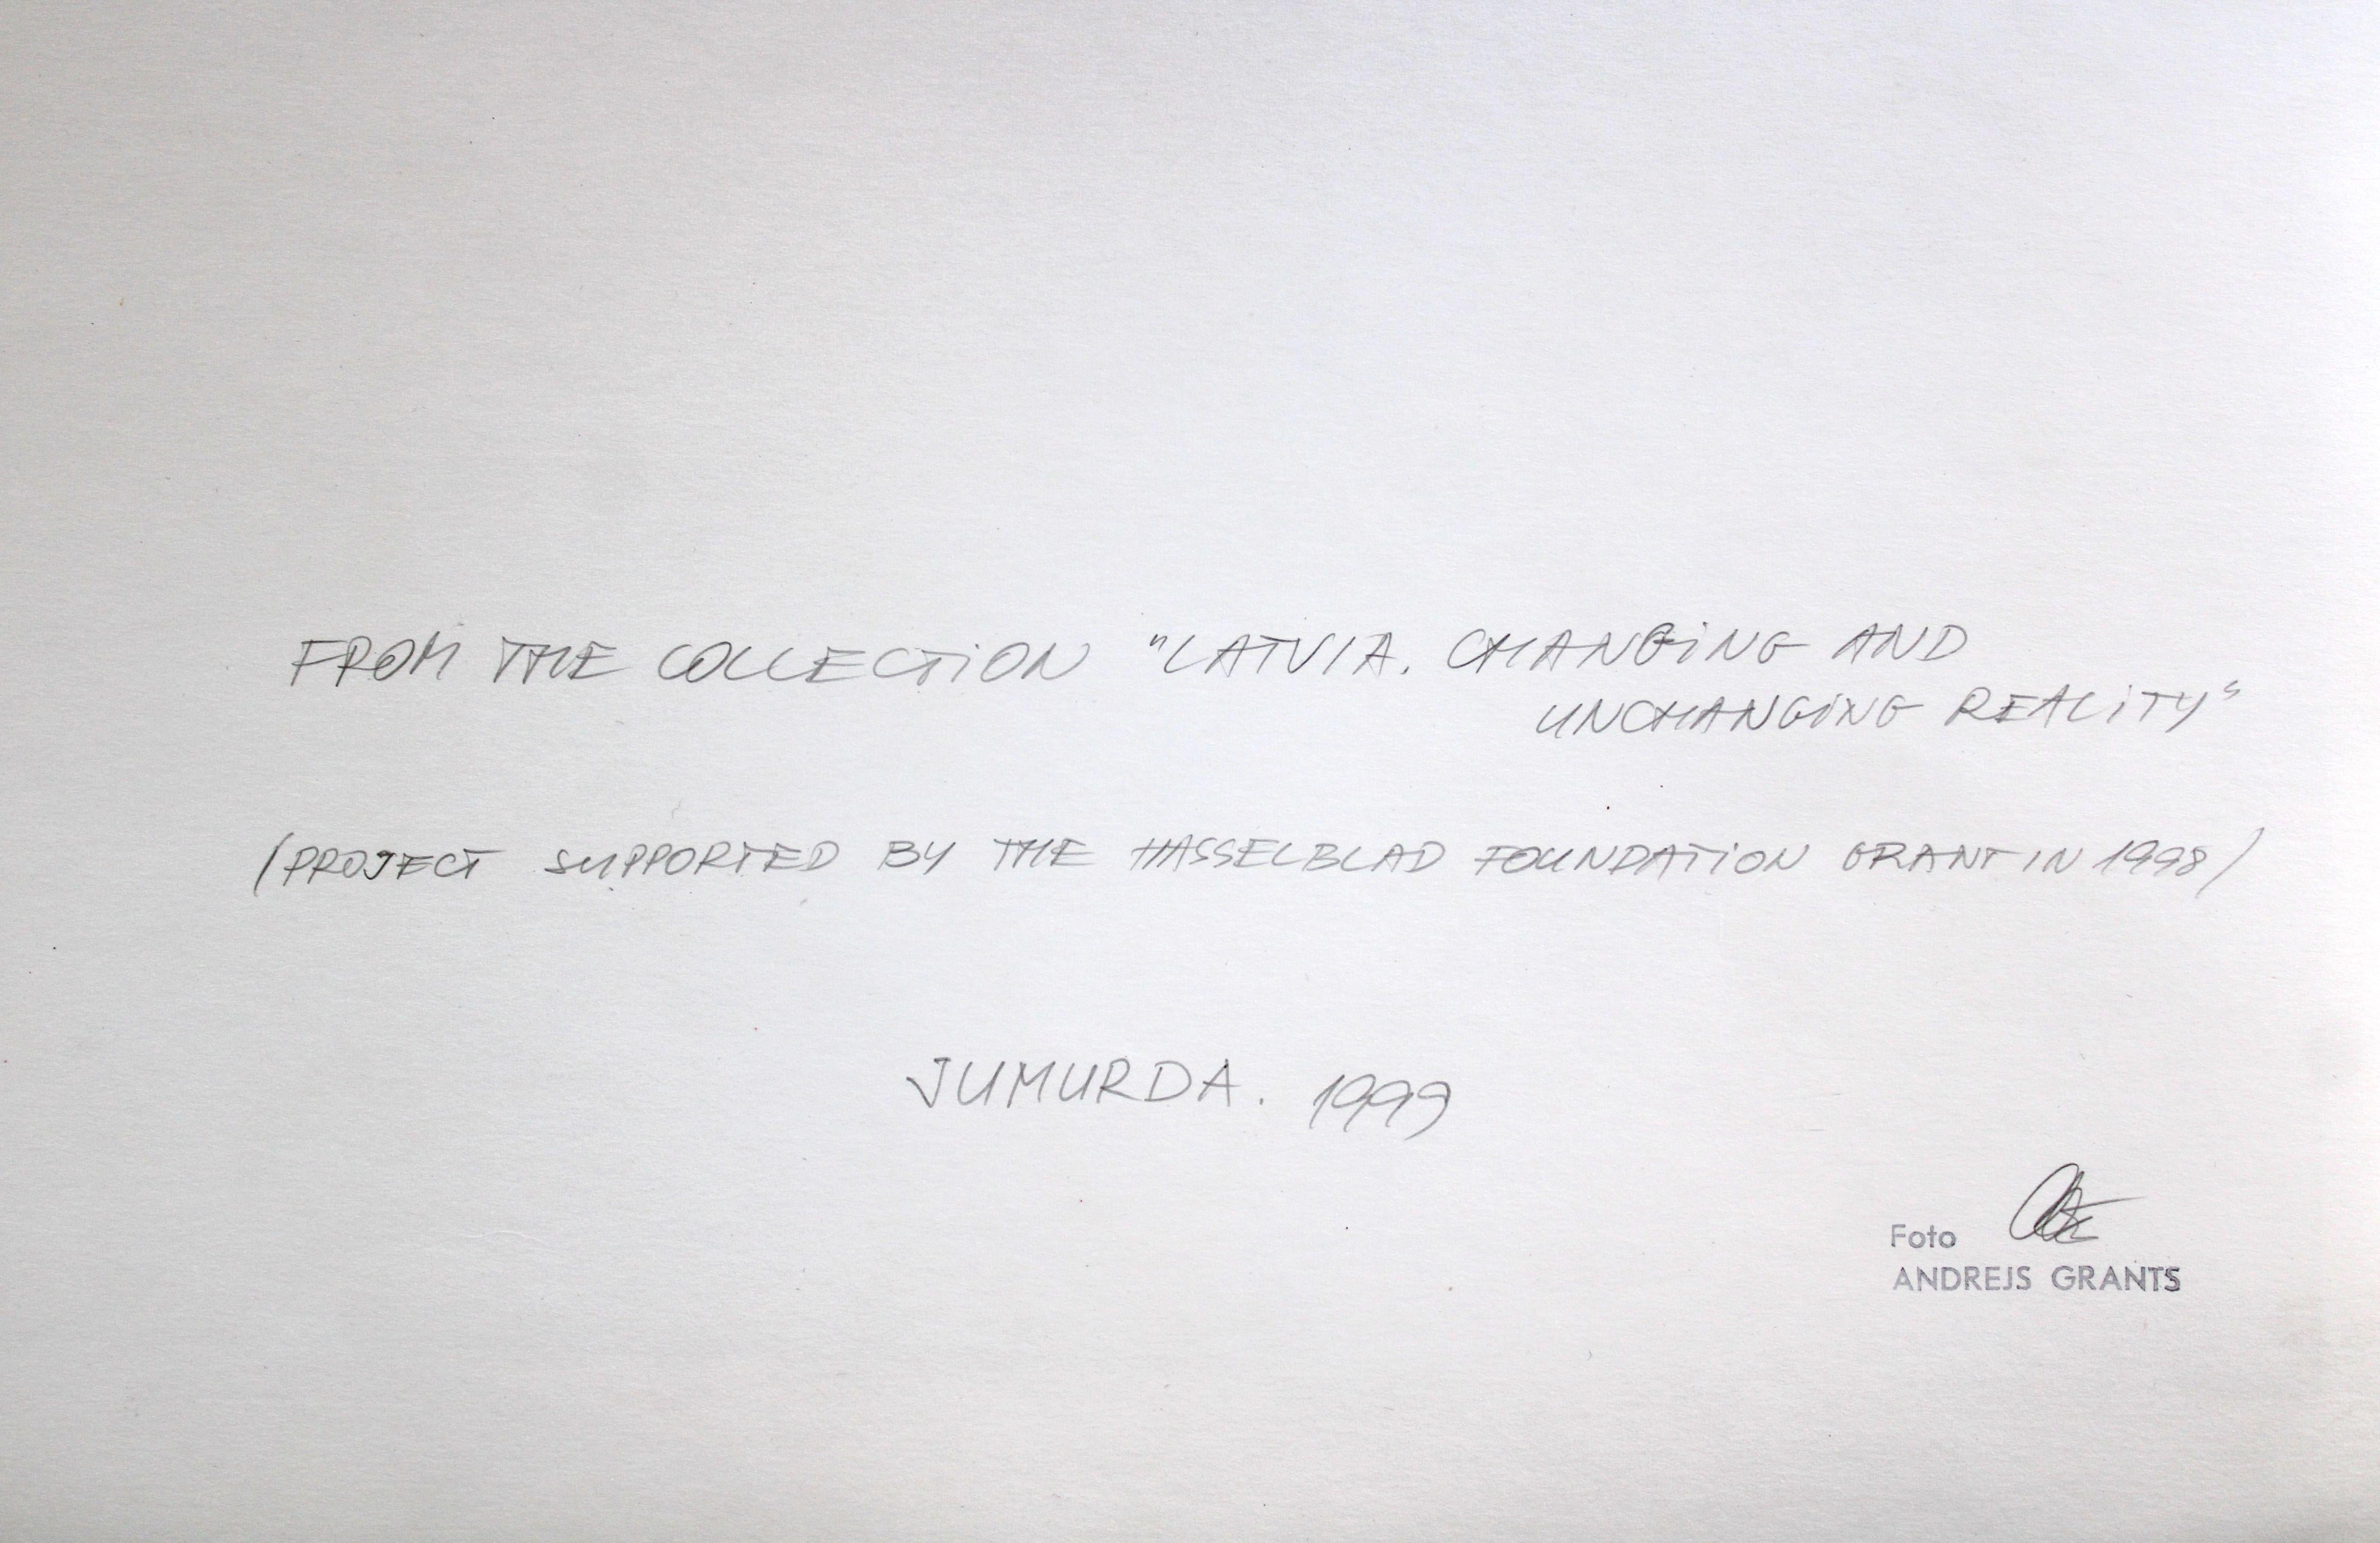 FROM THE COLLECTION "LATVIA. CHANGING AND
UNCHANGING REALITY"
(PROJECT SUPPORTED BY THE HASSELBLAD FOUNDATION GRANT IN 1998)
JUMURDA. 1999
Foto
ANDREJS GRANTS